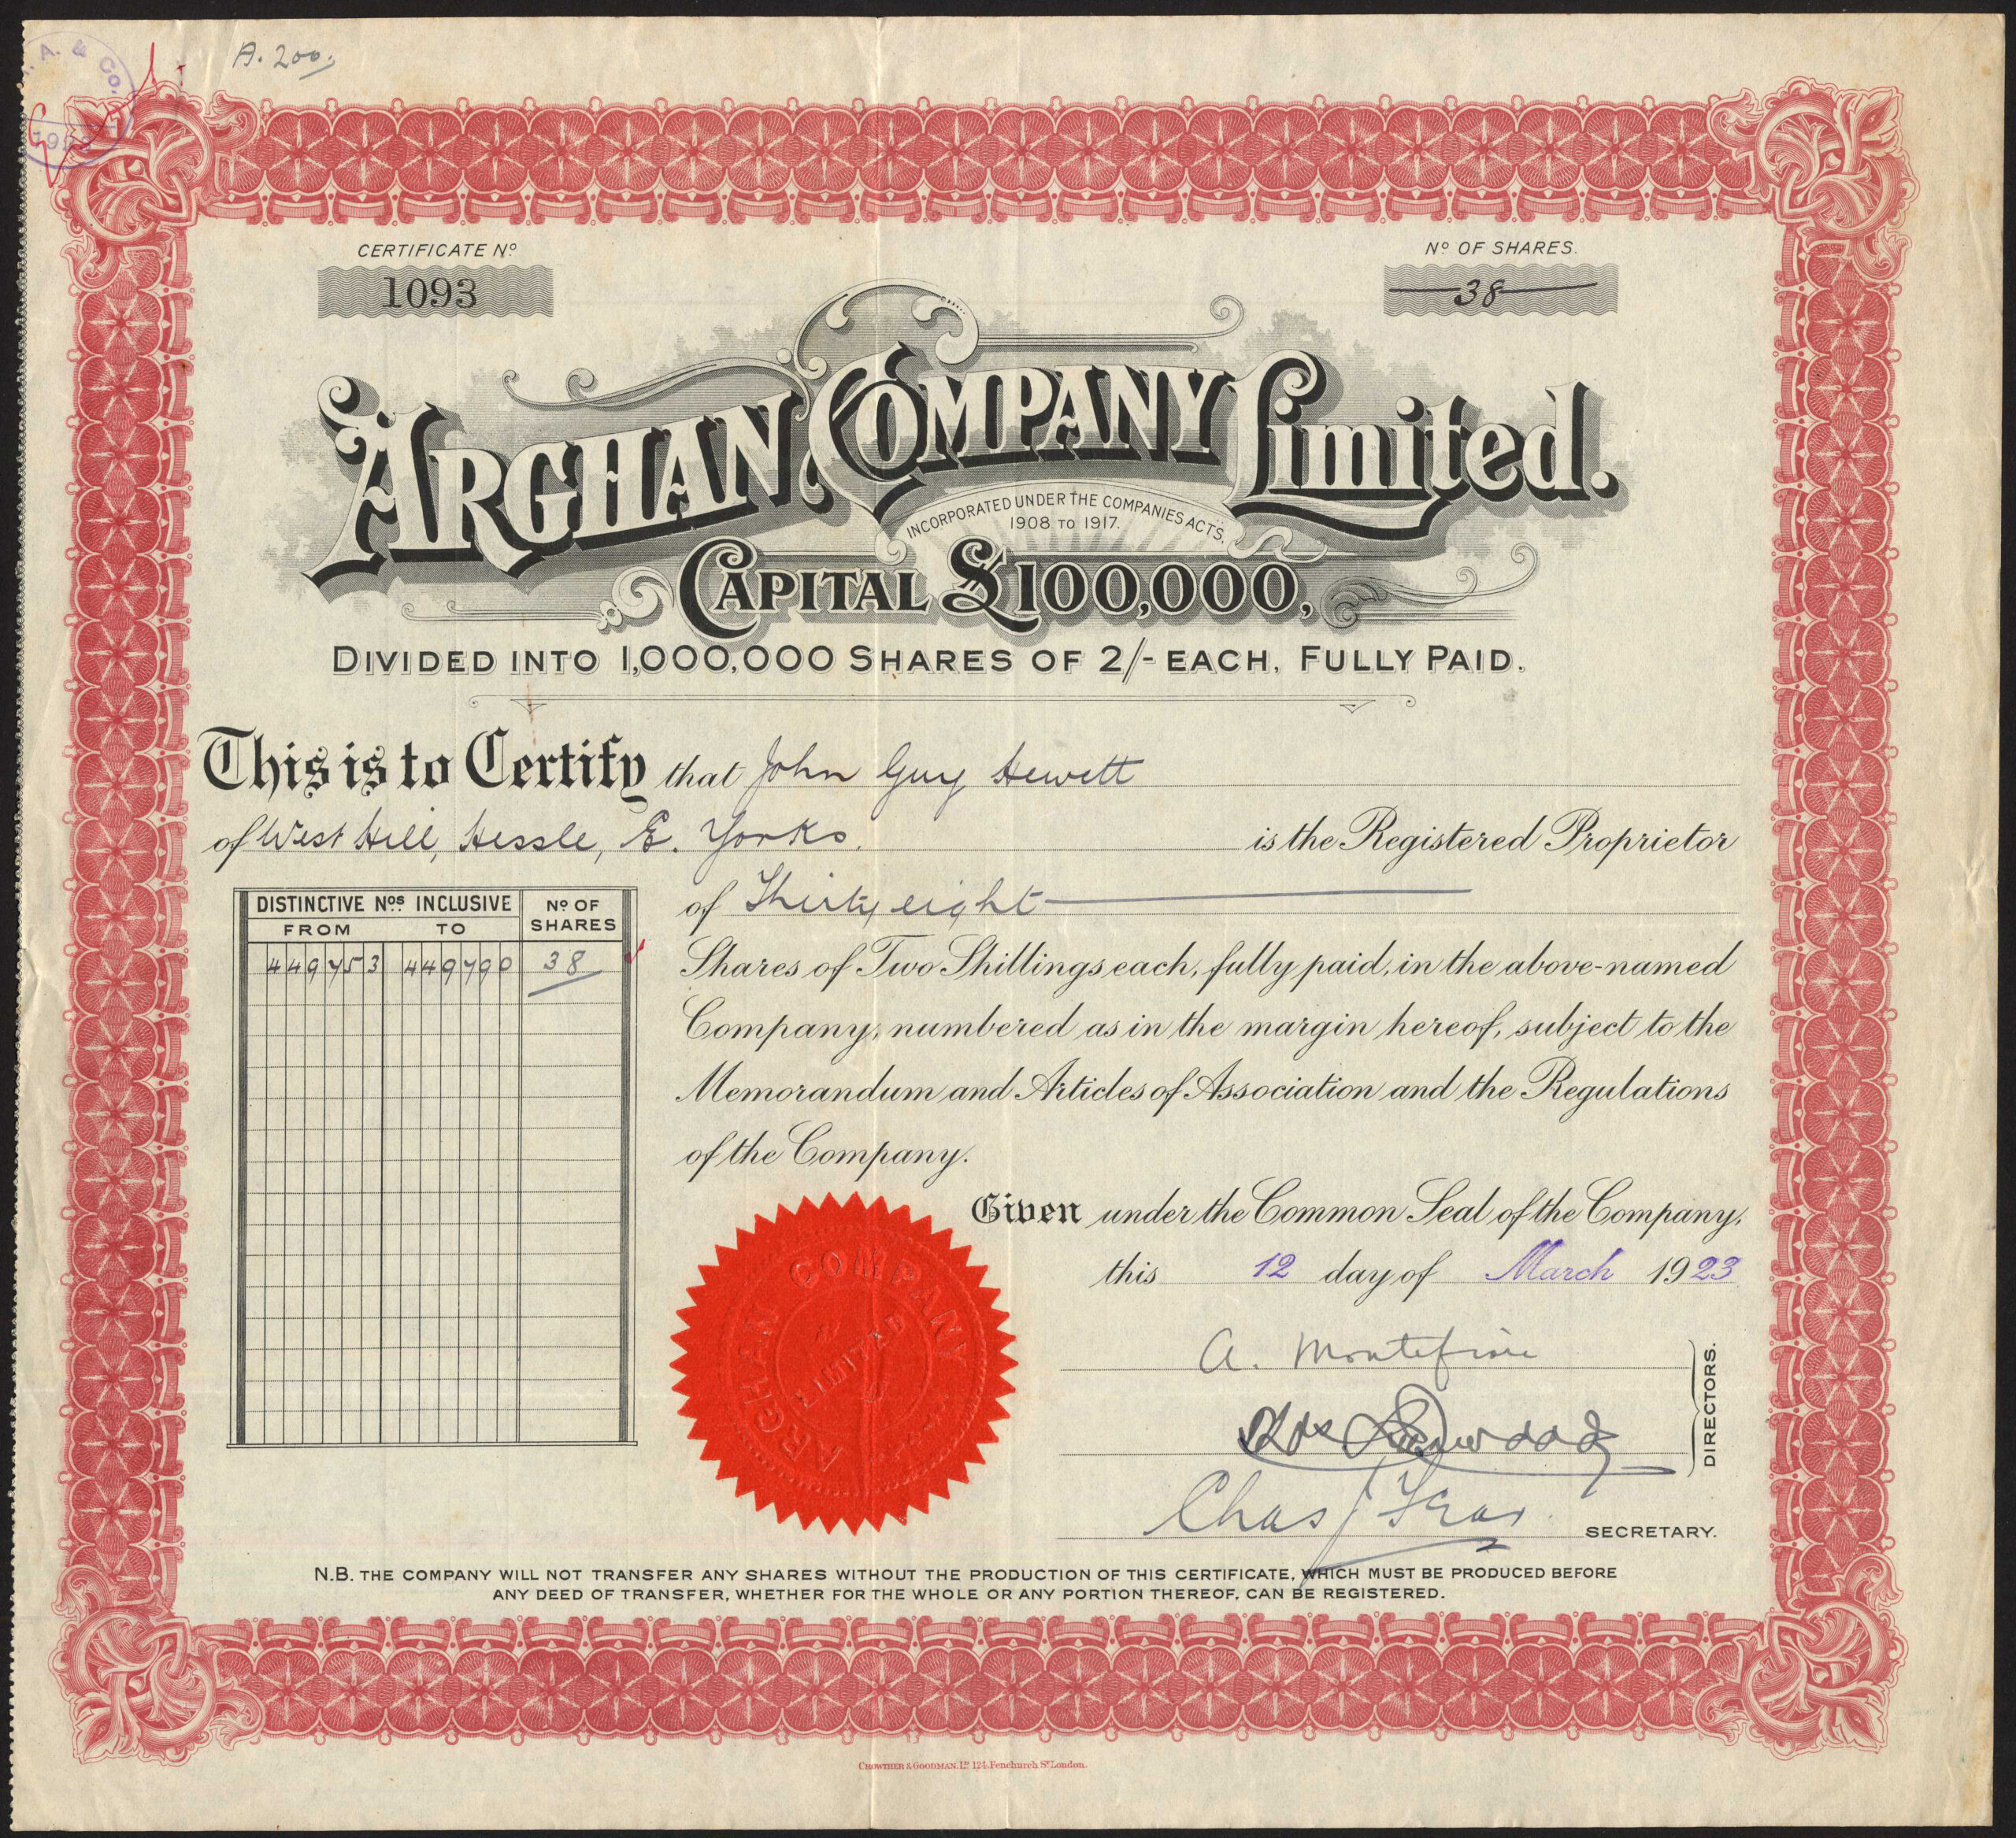 A. & Co.
A. 200.
CERTIFICATE No.
1093
No. OF SHARES.
38
ARGHAN COMPANY Limited.
INCORPORATED UNDER THE COMPANIES ACTS,
1908 TO 1917.
CAPITAL £100,000,
DIVIDED INTO 1,000,000 SHARES OF 2/- EACH, FULLY PAID.
This is to Certify that John Guy Hewett
of West Hill, Hessle, E. Yorks. is the Registered Proprietor
of Thirty eight
Shares of Two Shillings each, fully paid, in the above-named
Company, numbered as in the margin hereof, subject to the
Memorandum and Articles of Association and the Regulations
of the Company.
DISTINCTIVE Nos. INCLUSIVE No. OF SHARES
FROM TO
449753 449790 38
Given under the Common Seal of the Company,
this 12 day of March 1923
ARGHAN COMPANY
LIMITED
A. Montefiore
DIRECTORS.
Chas J
SECRETARY.
N.B. THE COMPANY WILL NOT TRANSFER ANY SHARES WITHOUT THE PRODUCTION OF THIS CERTIFICATE, WHICH MUST BE PRODUCED BEFORE
ANY DEED OF TRANSFER, WHETHER FOR THE WHOLE OR ANY PORTION THEREOF, CAN BE REGISTERED.
CROWTHER & GOODMAN, LD. 124, Fenchurch St. London.